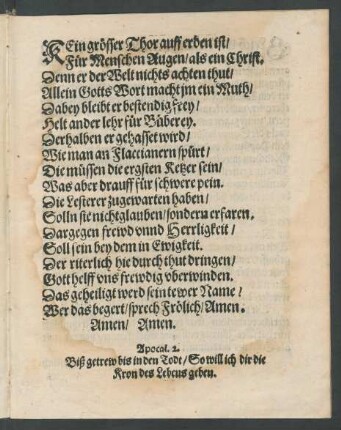 KEin grösser Thor auff erden ist/
Für Menschen Augen/als ein Christ.
Denn er der Welt nichts achten thut/
Allein Gotts Wort macht jm ein Muth/
Dabey bleibt er bestendig frey/
Helt ander lehr für Büberey.
Derhalben er gehasset wird/
Wie man an Flaccianern spürt/
Die müssen die ergsten Ketzer sein/
Was aber drauff für schwere pein.
Die Lesterer zugewarten haben/
Solln sie nicht glauben/sondern erfaren.
Dargegen frewd vnnd Herrligkeit/
Soll sein bey dem in Ewigkeit.
Der riterlich hie durch thut dringen/
Gott helff vns frewdig vberwinden.
Das geheiligt werd sein tewer Name/
Wer das begert/sprech Frölich/Amen.
Amen/ Amen.
Apocal. 2.
Biß getrew bis in den Todt/So will ich dir die
Kron des Lebens geben.